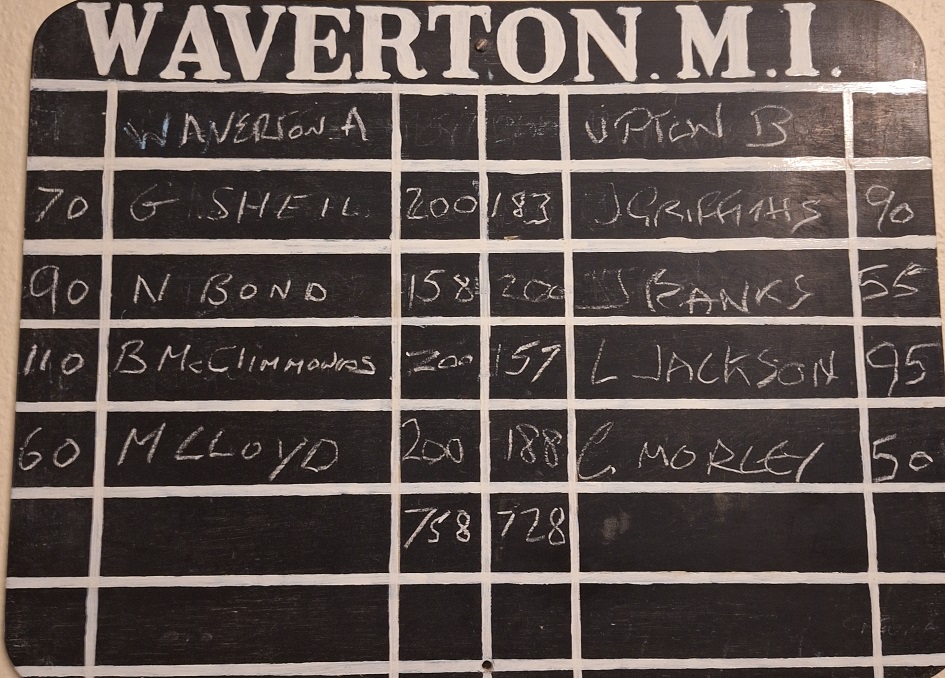 WAVERTON. M.I.
WAVERTON A UPTON B
70 G SHEIL 200 183 J GRIFFITHS 90
90 N BOND 158 200 J BANKS 55
110 B McClimmonds 200 157 L JACKSON 95
60 M LLOYD 200 188 C MORLEY 50
758 728